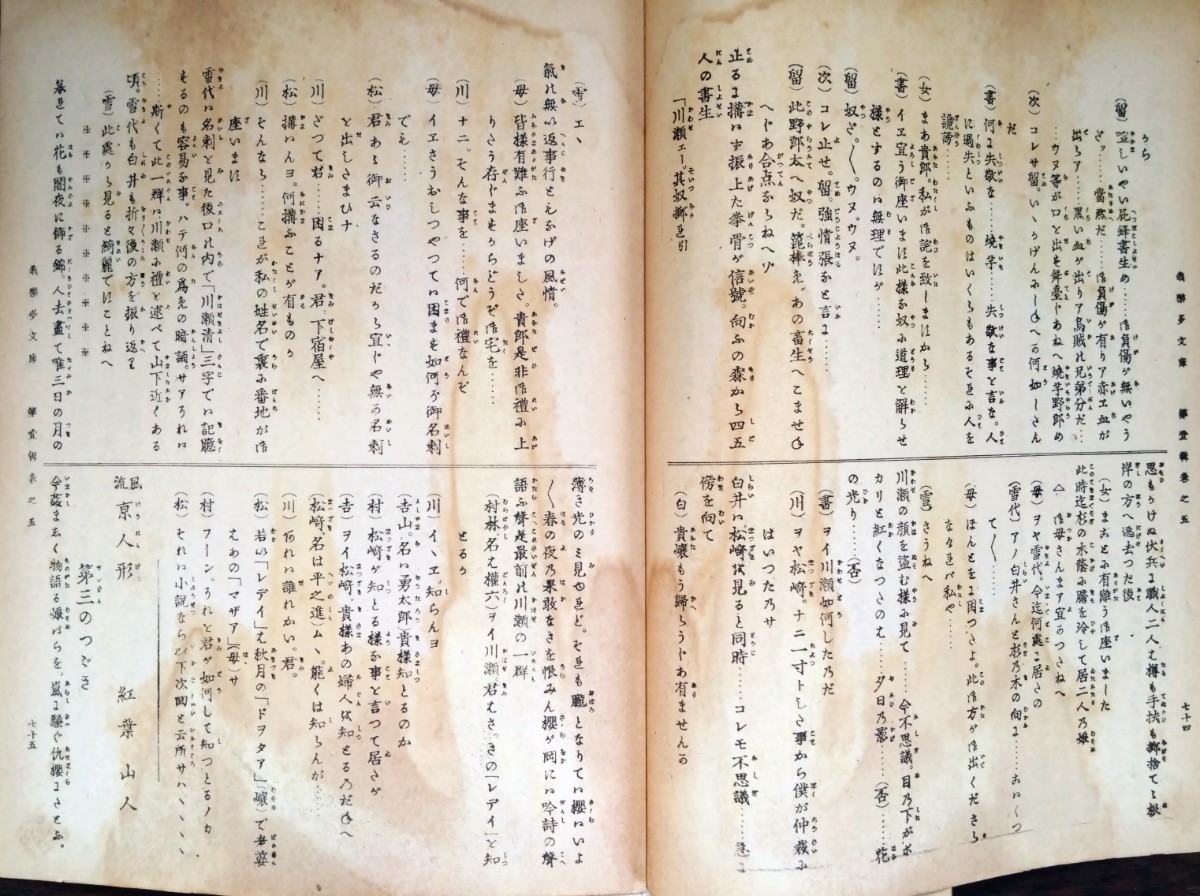 我樂多文庫 第壹輯卷之五
七十四
うら
(留)宜しいやい屁鉾書生め……お負傷が無いやう
ざツ……當然だ……お負傷が有りア赤エ血が
出らア……黒い血が出りア烏賊の兄弟分だ…
…ウヌ等が口と出を舞臺じあねへ燒芋野郎め
(次)コレサ留。いゝうげんにしねへか何如しさん
だ
(書)何だ失敬な……燒芋……失敬な事と言な。人
に過失といふものはいくらもあるそれに人を
讒謗……
(女)まあ貴郎。私がお詫を致しまはから……
(書)イエ宜う御座いまは此樣な奴に道理と解らせ
樣とするのは無理ではが……
(留)奴だ。〱。ウヌ。ウヌ。
(次)コレ止せ。留。強情張なと言に……
(留)此野郎太へ奴だ。箆棒め。あの畜生へこませねへ
へじあ合点ならねへゾ
止るに搆はず振上た拳骨が信號。向ふの森から四五
人の書生
「川瀬エー。其奴擲れ引
思もうけぬ伏兵に職人二人は樽も手拭も擲捨てゝ松
岸の方へ逃去つた後
(女)まおとに有難う御座いました
此時迄杉の木蔭に膽を冷して居た二人の娘
お母さんまア宜かつたねへ
(母)ヲヤ雪代。今迄何處に居たの
(雪代)アノ白井さんと杉乃木の向に……おにく
て〱……
(母)ほんとをに困つたよ。此お方がお出くださら
なければ私や……
(雪)さうねへ
川瀬の顔を盗む樣に見て……今不思議。目乃下がポ
カリと紅くなつたのは……夕日乃影……(否)……花
の光り……(否)
(書)ヲイ川瀬如何したのだ
(川)ヲヤ松崎。ナニ一寸トした事から僕が仲裁に
はいつたのサ
白井は松崎を見ると同時……コレモ不思議……急に
傍を向て
(白)貴孃もう歸らうじあ有ませんか
(雪)エヽ
氣の無い返事行とえかげの風情。
(母)皆樣有難ふ御座いました。貴郎是非お禮に上
りたう存じまそうらどうぞお宅を……
(川)ナニ。そんな事を……何でお禮なんぞ
(母)イエさうおしつやつては困まを如何か御名刺
でえ……
(松)君あゝ御云なさるのだから宜じや無か名刺
と出したまひナ
(川)ざつて君……困るナア。君。下宿屋へ……
(松)搆はんヨ。何搆ふことが有ものか
(川)そんなら……これが私の姓名で裏に番地が御
座いまは
雪代は名刺と見た後口の内で「川瀬清」三字では記臆
をるのも容易な事。ハテ何の爲めの暗誦。サアそれは
……斯くて此一群は川瀬に禮と述べて山下近くある
頃。雪代も白井も折々後の方を振り返り
(雪)此處から見ると綺麗ではことねへ
＊＊＊＊＊＊＊＊
暮れては花も闇夜に飾る錦。人去盡て唯三日の月の
薄き光のミ見やれど。それも朧となりては櫻はいよ
〱春の夜乃果敢なきを恨みん櫻が岡にハ吟詩の聲
語ふ聲是最前の川瀬の一群
(村林。名ハ權六)ヲイ川瀬君むさきの「レデイ」と知
とるか
(川)イヽエ。知らんヨ
(吉山。名は勇太郎)貴樣知とるのか
(村)松崎が知とる樣な事と言つて居たが
(吉)ヲイ松崎。貴樣あの婦人を知とる乃だねへ
(松崎。名は平之進)ムヽ。能くは知らんが……
(川)それは誰れかい。君。
(松)若い「レデイ」は秋月の「ドヲタア」(孃)で老婆
えあの「マザア」(母)サ
(村)フーン。それと君が如何して知つとるノカ
(松)それハ小説なら以下次囘と云所サハヽヽヽ
風流 京人形
紅葉山人
第三のつゞき
今茲ましく物語る源はらを。嵐に騒ぐ仇櫻にさとふ。
我樂多文庫 第壹輯卷之五
七十五